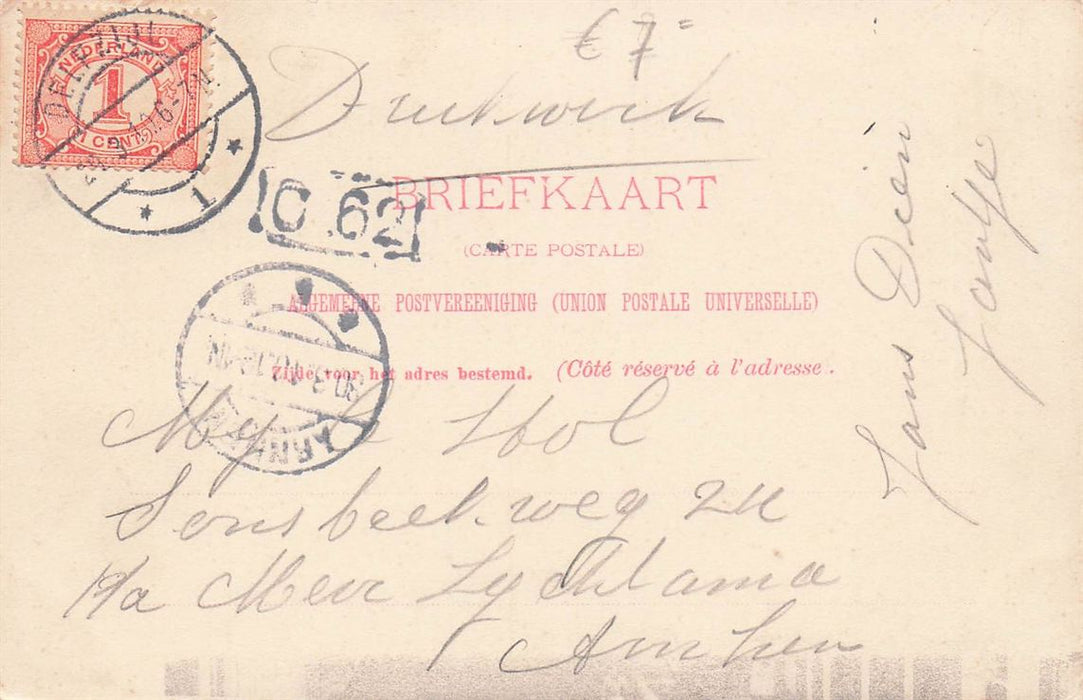 € 7=
Drukwerk
NEDERLAND
1
1 CENT
DELFZIJL
1
C 62
BRIEFKAART
(CARTE POSTALE)
ALGEMEENE POSTVEREENIGING (UNION POSTALE UNIVERSELLE)
Zijde voor het adres bestemd. (Côté réservé à l'adresse.
ARNHEM
Hol
Sonsbeek.weg
p/a Mevr Lycklama
Arnhem
Jans